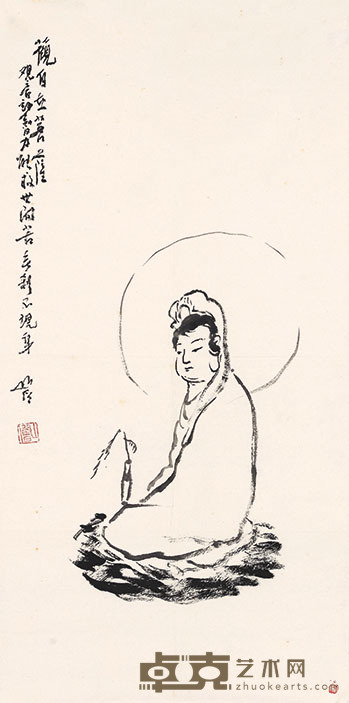 觀自在菩薩
觀音妙智力能救世間苦無刹不現身
卓克艺术网
zhuokearts.com